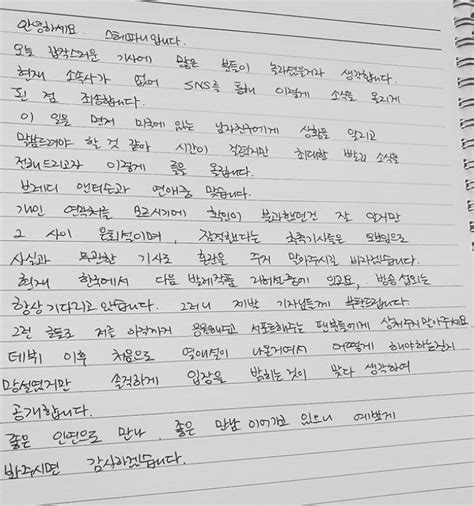 안녕하세요. 스테파니입니다.
오늘 갑작스러운 기사에 많은 분들이 놀라셨을거라 생각합니다.
현재 소속사가 없어 SNS를 통해 이렇게 소식을 올리게
된 점 죄송합니다.
이 일을 먼저 미국에 있는 남자친구에게 상황을 알리고
말씀드려야 할 것 같아 시간이 걸렸지만 최대한 빨리 소식을
전해드리고자 이렇게 글을 올립니다.
브래디 앤더슨과 연애중 맞습니다.
개인 연락처를 모르시기에 확인이 불과했던건 잘 알지만
그 사이 은퇴설이며, 잠적했다는 추측기사들은 오보임으로
사실과 무관한 기사로 혼란을 주지 말아주시길 바라겠습니다.
현재 한국에서 다음 발레작품 리허설중에 있고요, 방송 섭외는
항상 기다리고 있습니다. 그러니 제발 기자님들께 부탁드립니다.
그런 글들로 저를 아직까지 응원해주고 서포트해주는 팬분들에게 상처주지말아주세요
데뷔 이후 처음으로 열애설이 나온거여서 어떻게 해야하는건지
망설였지만 솔직하게 입장을 밝히는것이 맞다 생각하여
공개합니다.
좋은 인연으로 만나, 좋은 만남 이어가고 있으니 예쁘게
봐주시면 감사하겠습니다.